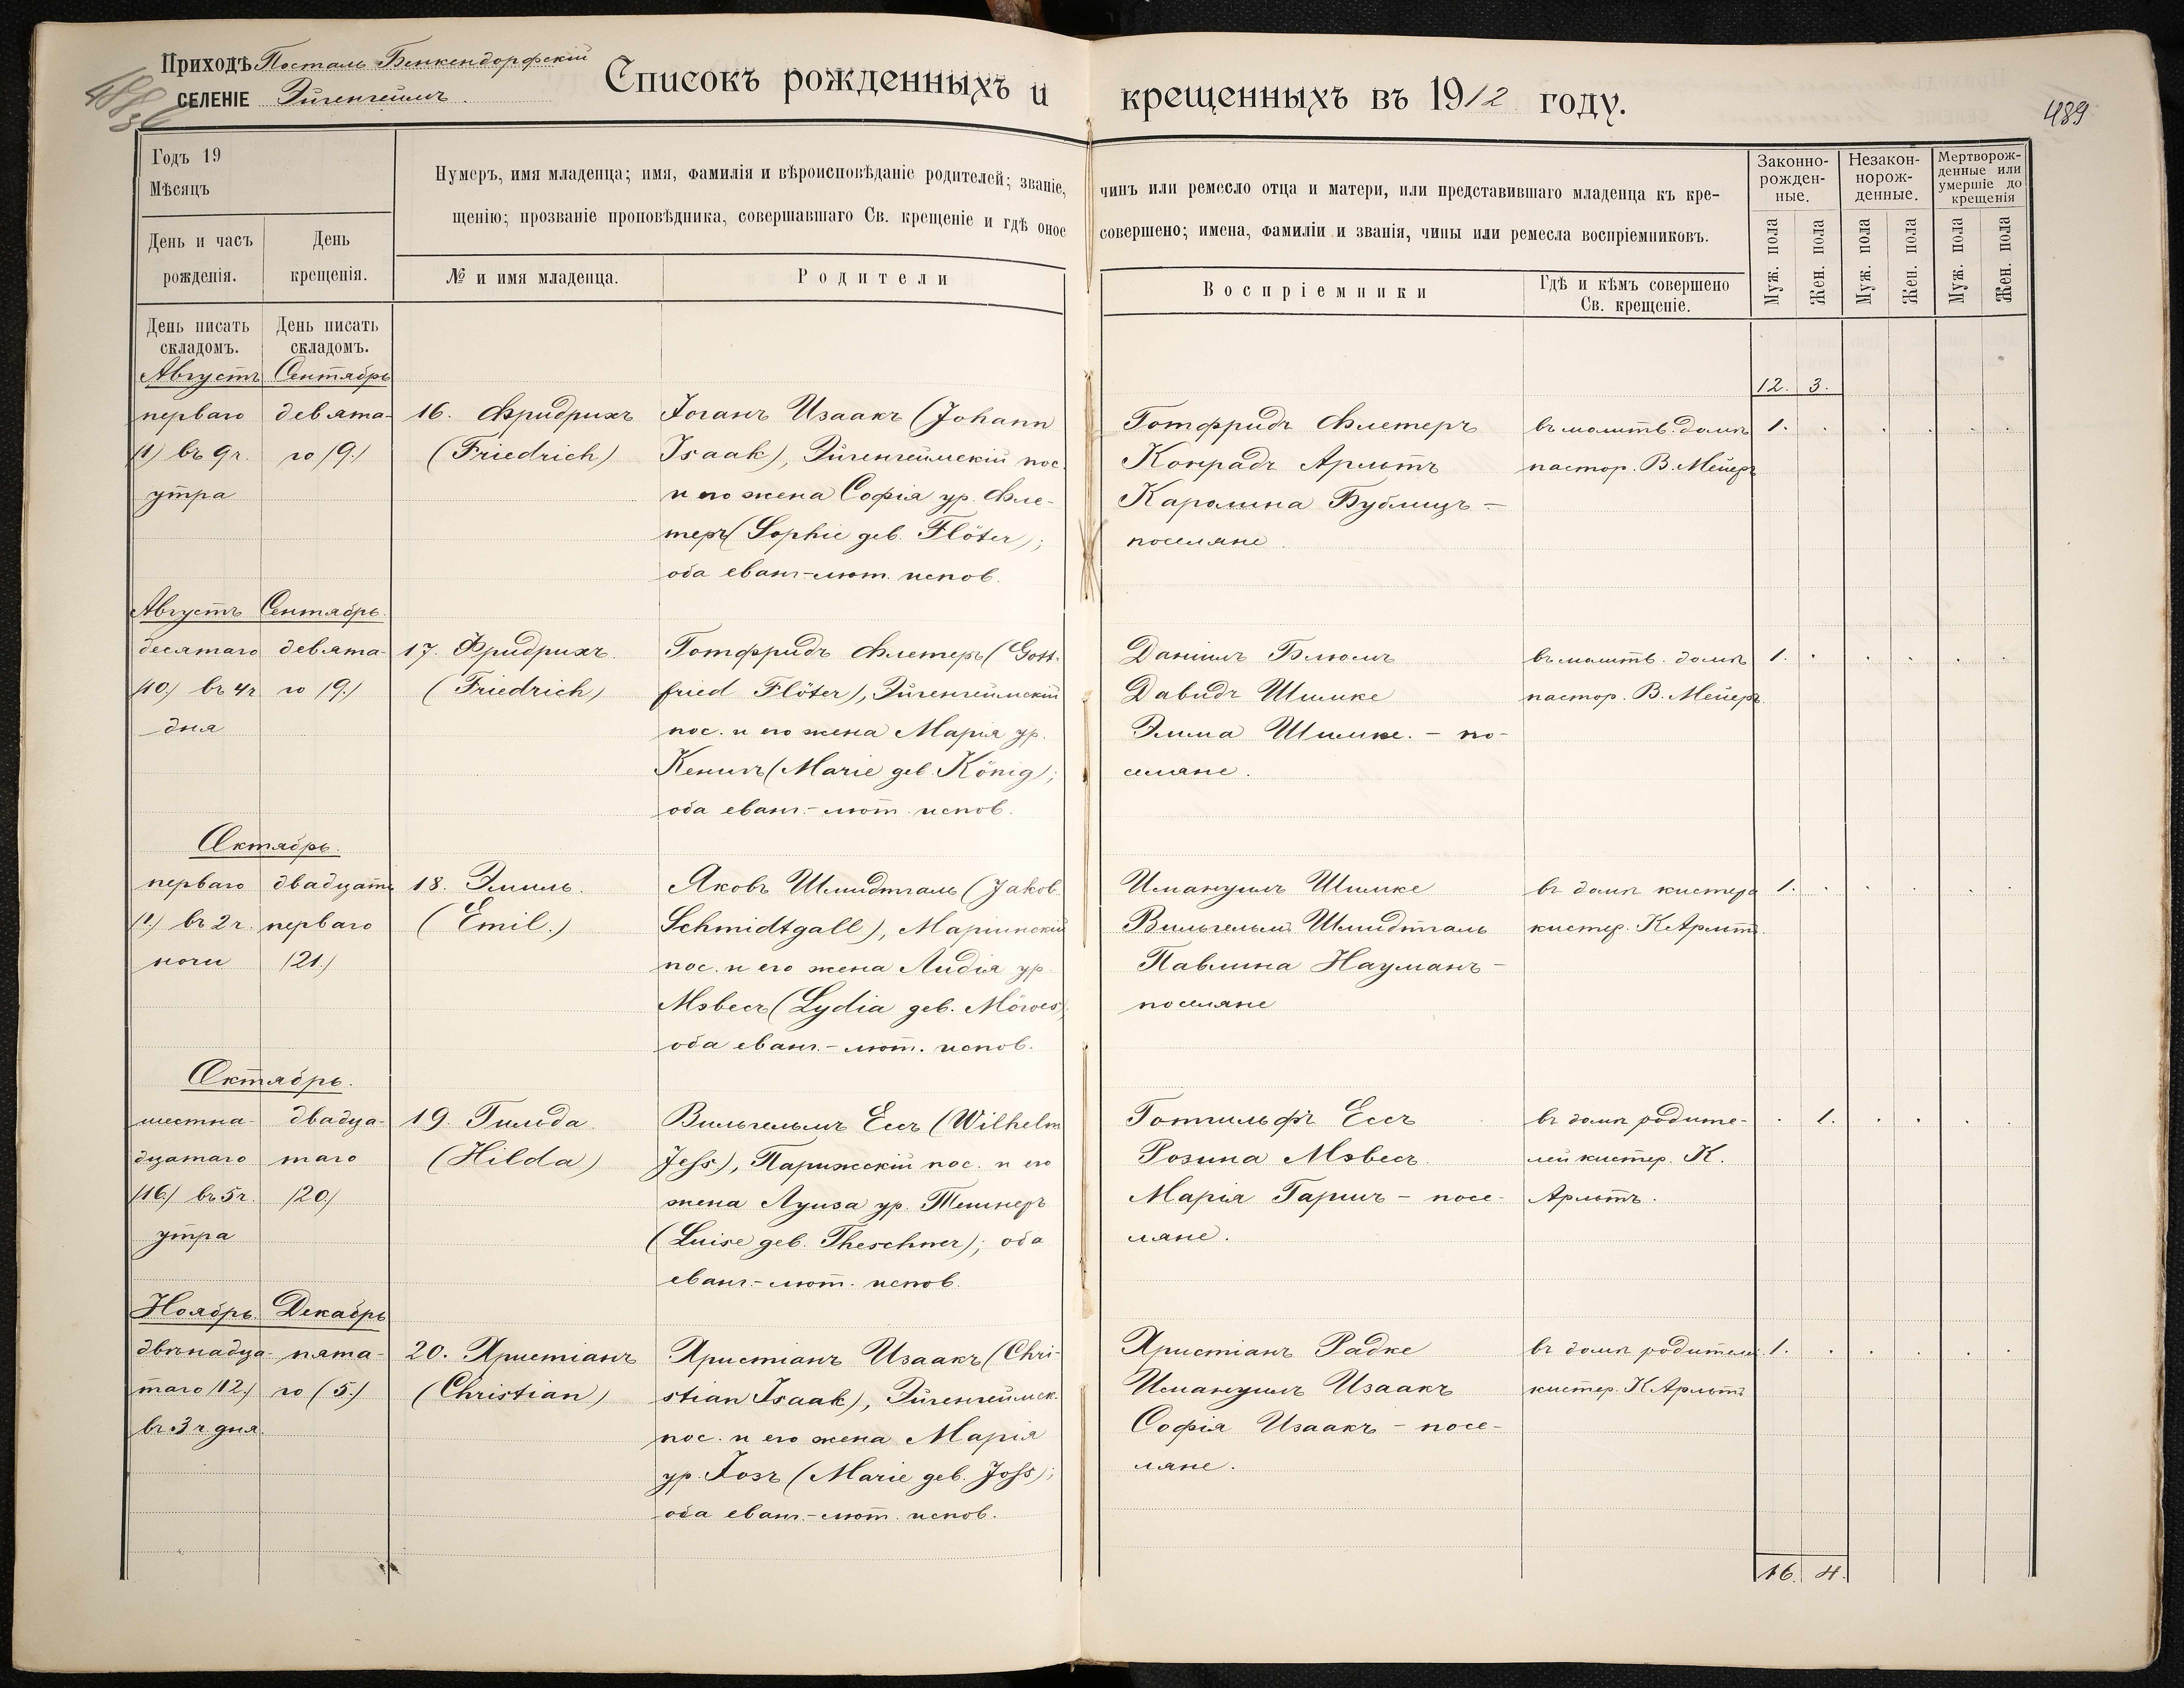 Приходъ Посталь Бенкендорфскій
СЕЛЕНІЕ Эйгенгеймъ.
Списокъ рожденныхъ и крещенныхъ въ 1912 году.
489
Годъ 19
Мѣсяцъ
День и часъ рожденія.
День крещенія.
Нумеръ, имя младенца; имя, фамилія и вѣроисповѣданіе родителей; званіе, чинъ или ремесло отца и матери, или представившаго младенца къ кре-
щенію; прозваніе проповѣдника, совершавшаго Св. крещеніе и гдѣ оное совершено; имена, фамиліи и званія, чины или ремесла воспріемниковъ.
№ и имя младенца.
Родители
Воспріемники
Гдѣ и кѣмъ совершено
Св. крещеніе.
Законно-
рожден-
ные.
Незакон-
норож-
денные.
Мертворож-
денные или
умершіе до
крещенія
Муж. пола
Жен. пола
Муж. пола
Жен. пола
Муж. пола
Жен. пола
День писать
складомъ.
День писать
складомъ.
12. 3.
Августъ
перваго
(1) въ 9 ч.
утра
Сентябрь
девята-
го (9.)
16. Фридрихъ
(Friedrich)
Іоганъ Изаакъ (Johann
Isaak), Эйгенгеймскій пос.
и его жена Софія ур. Фле-
теръ (Sophie geb. Flöter);
оба еванг-лют. испов.
Готфридъ Флетеръ
Конрадъ Арльтъ
Каролина Бублицъ -
поселяне
въ молитв. домѣ
пастор. В. Мейеръ
1.
Августъ
десятаго
(10.) въ 4 ч
дня
Сентябрь.
девята-
го (9.)
17. Фридрихъ.
(Friedrich)
Готфридъ Флетеръ (Gott-
fried Flöter), Эйгенгеймскій
пос. и его жена Марія ур.
Кенигъ (Marie geb. König);
оба еванг.-лют. испов.
Даніилъ Блюмъ
Давидъ Шимке
Эмма Шимке. - по-
селяне.
въ молитв. домѣ
пастор. В. Мейеръ.
1.
Октябрь.
перваго
(1.) въ 2 ч.
ночи
двадцать
перваго
(21.)
18. Эмиль.
(Emil.)
Яковъ Шмидтгаль (Jakob
Schmidtgall), Маріинскій
пос. и его жена Лидія ур.
Мэвесъ (Lydia geb. Möwes),
оба еванг.-лют. испов.
Имануилъ Шимке
Вильгельмъ Шмидтгаль
Павлина Науманъ -
поселяне
въ домѣ кистера
кистер. К Арльтъ.
1.
Октябрь.
шестна-
дцатаго
(16.) въ 5 ч.
утра
двадца-
таго
(20.)
19. Гильда.
(Hilda)
Вильгельмъ Есъ (Wilhelm
Jeß), Парижскій пос. и его
жена Луиза ур. Тешнеръ
(Luise geb. Theschner); оба
еванг.-лют. испов.
Готгильфъ Есъ
Розина Мэвесъ
Марія Гаричъ - посе-
ляне.
въ домѣ родите-
лей кистер. К.
Арльтъ.
1.
Ноябрь.
двѣнадца-
таго (12.)
въ 3 ч. дня.
Декабрь
пята-
го (5.)
20. Христіанъ
(Christian)
Христіанъ Изаакъ (Chri-
stian Isaak), Эйгенгеймск.
пос. и его жена Марія
ур. Іозъ (Marie geb. Joß);
оба еванг.-лют. испов.
Христіанъ Радке
Имануилъ Изаакъ
Софія Изаакъ - посе-
ляне.
въ домѣ родителей
кистер. К Арльтъ
1.
16. 4.